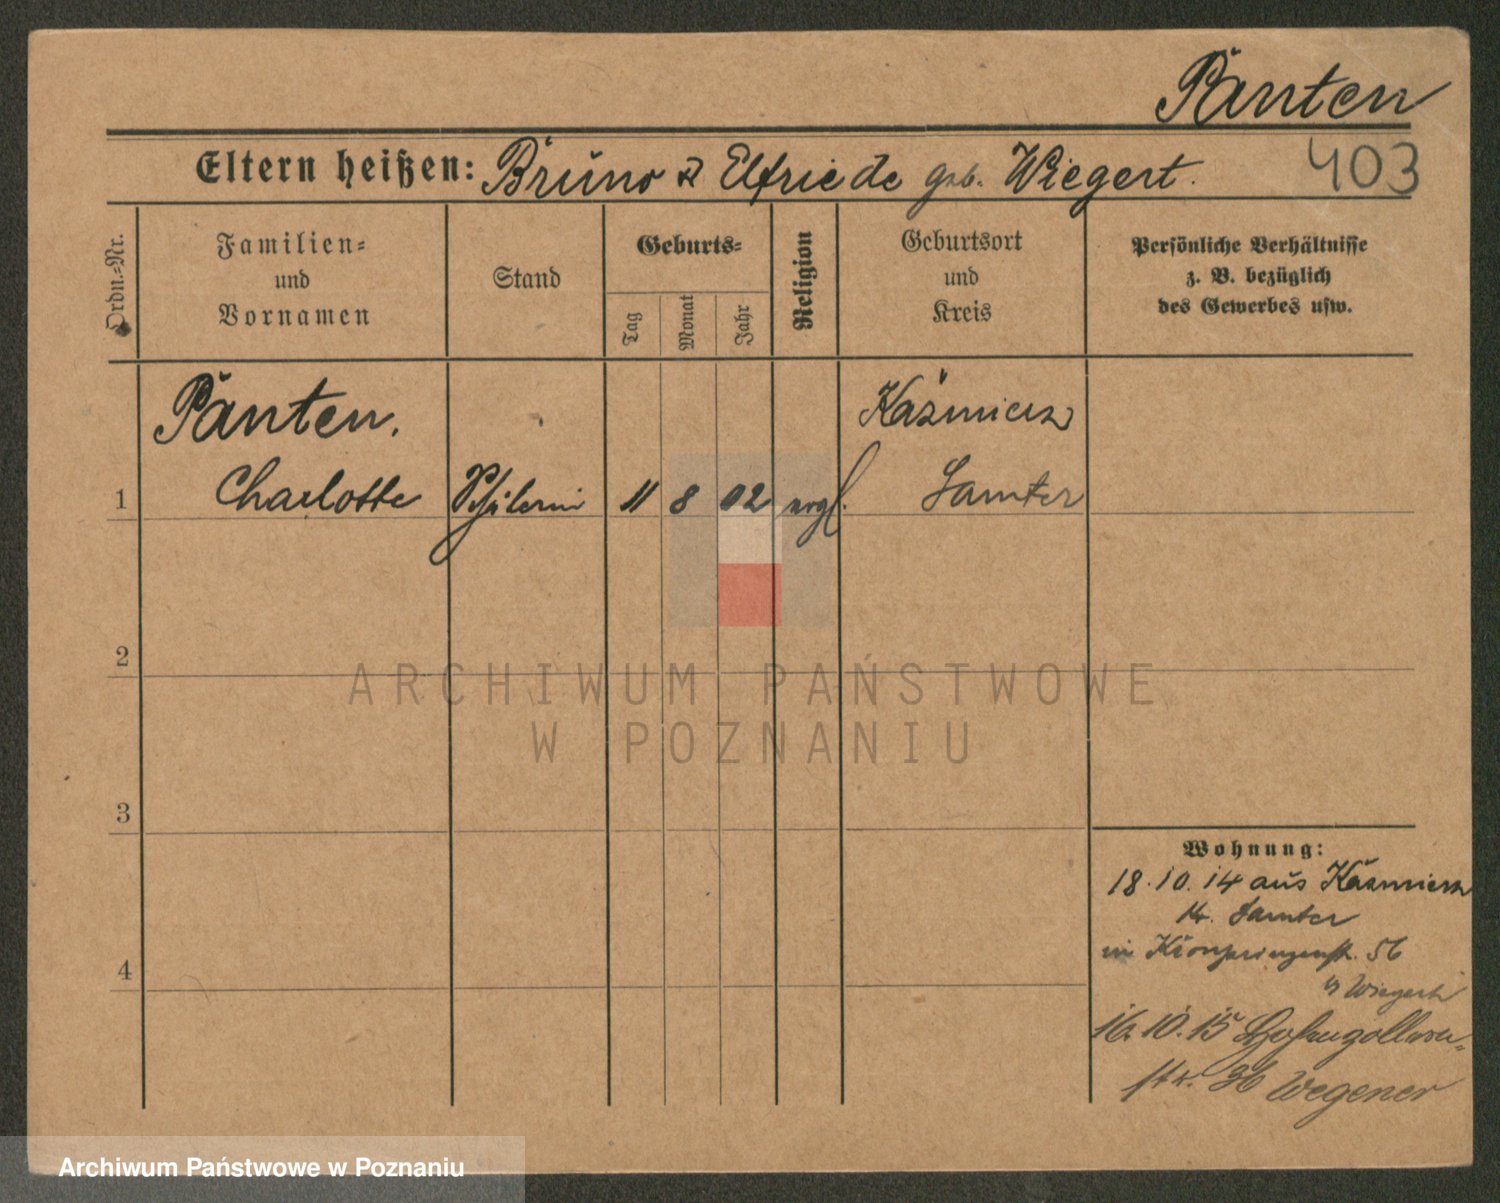 Pänten
Eltern heißen: Bruno u Elfriede geb. Wiegert.
403
Ordn.-Nr.
Familien-
und
Vornamen
Stand
Geburts-
Tag
Monat
Jahr
Religion
Geburtsort
und
Kreis
Persönliche Verhältnisse
z. B. bezüglich
des Gewerbes usw.
Pänten.
Kazmierz
1 Charlotte Schülerin 11 8 02 evgl. Samter
2
ARCHIWUM PAŃSTWOWE
W POZNANIU
3
Wohnung:
18.10.14 aus Kazmierz
Kr. Samter
in Kronprinzenstr. 56
b/ Wiegert
4
16.10.15 Hohenzollern-
str. 36 Wegener
Archiwum Państwowe w Poznaniu